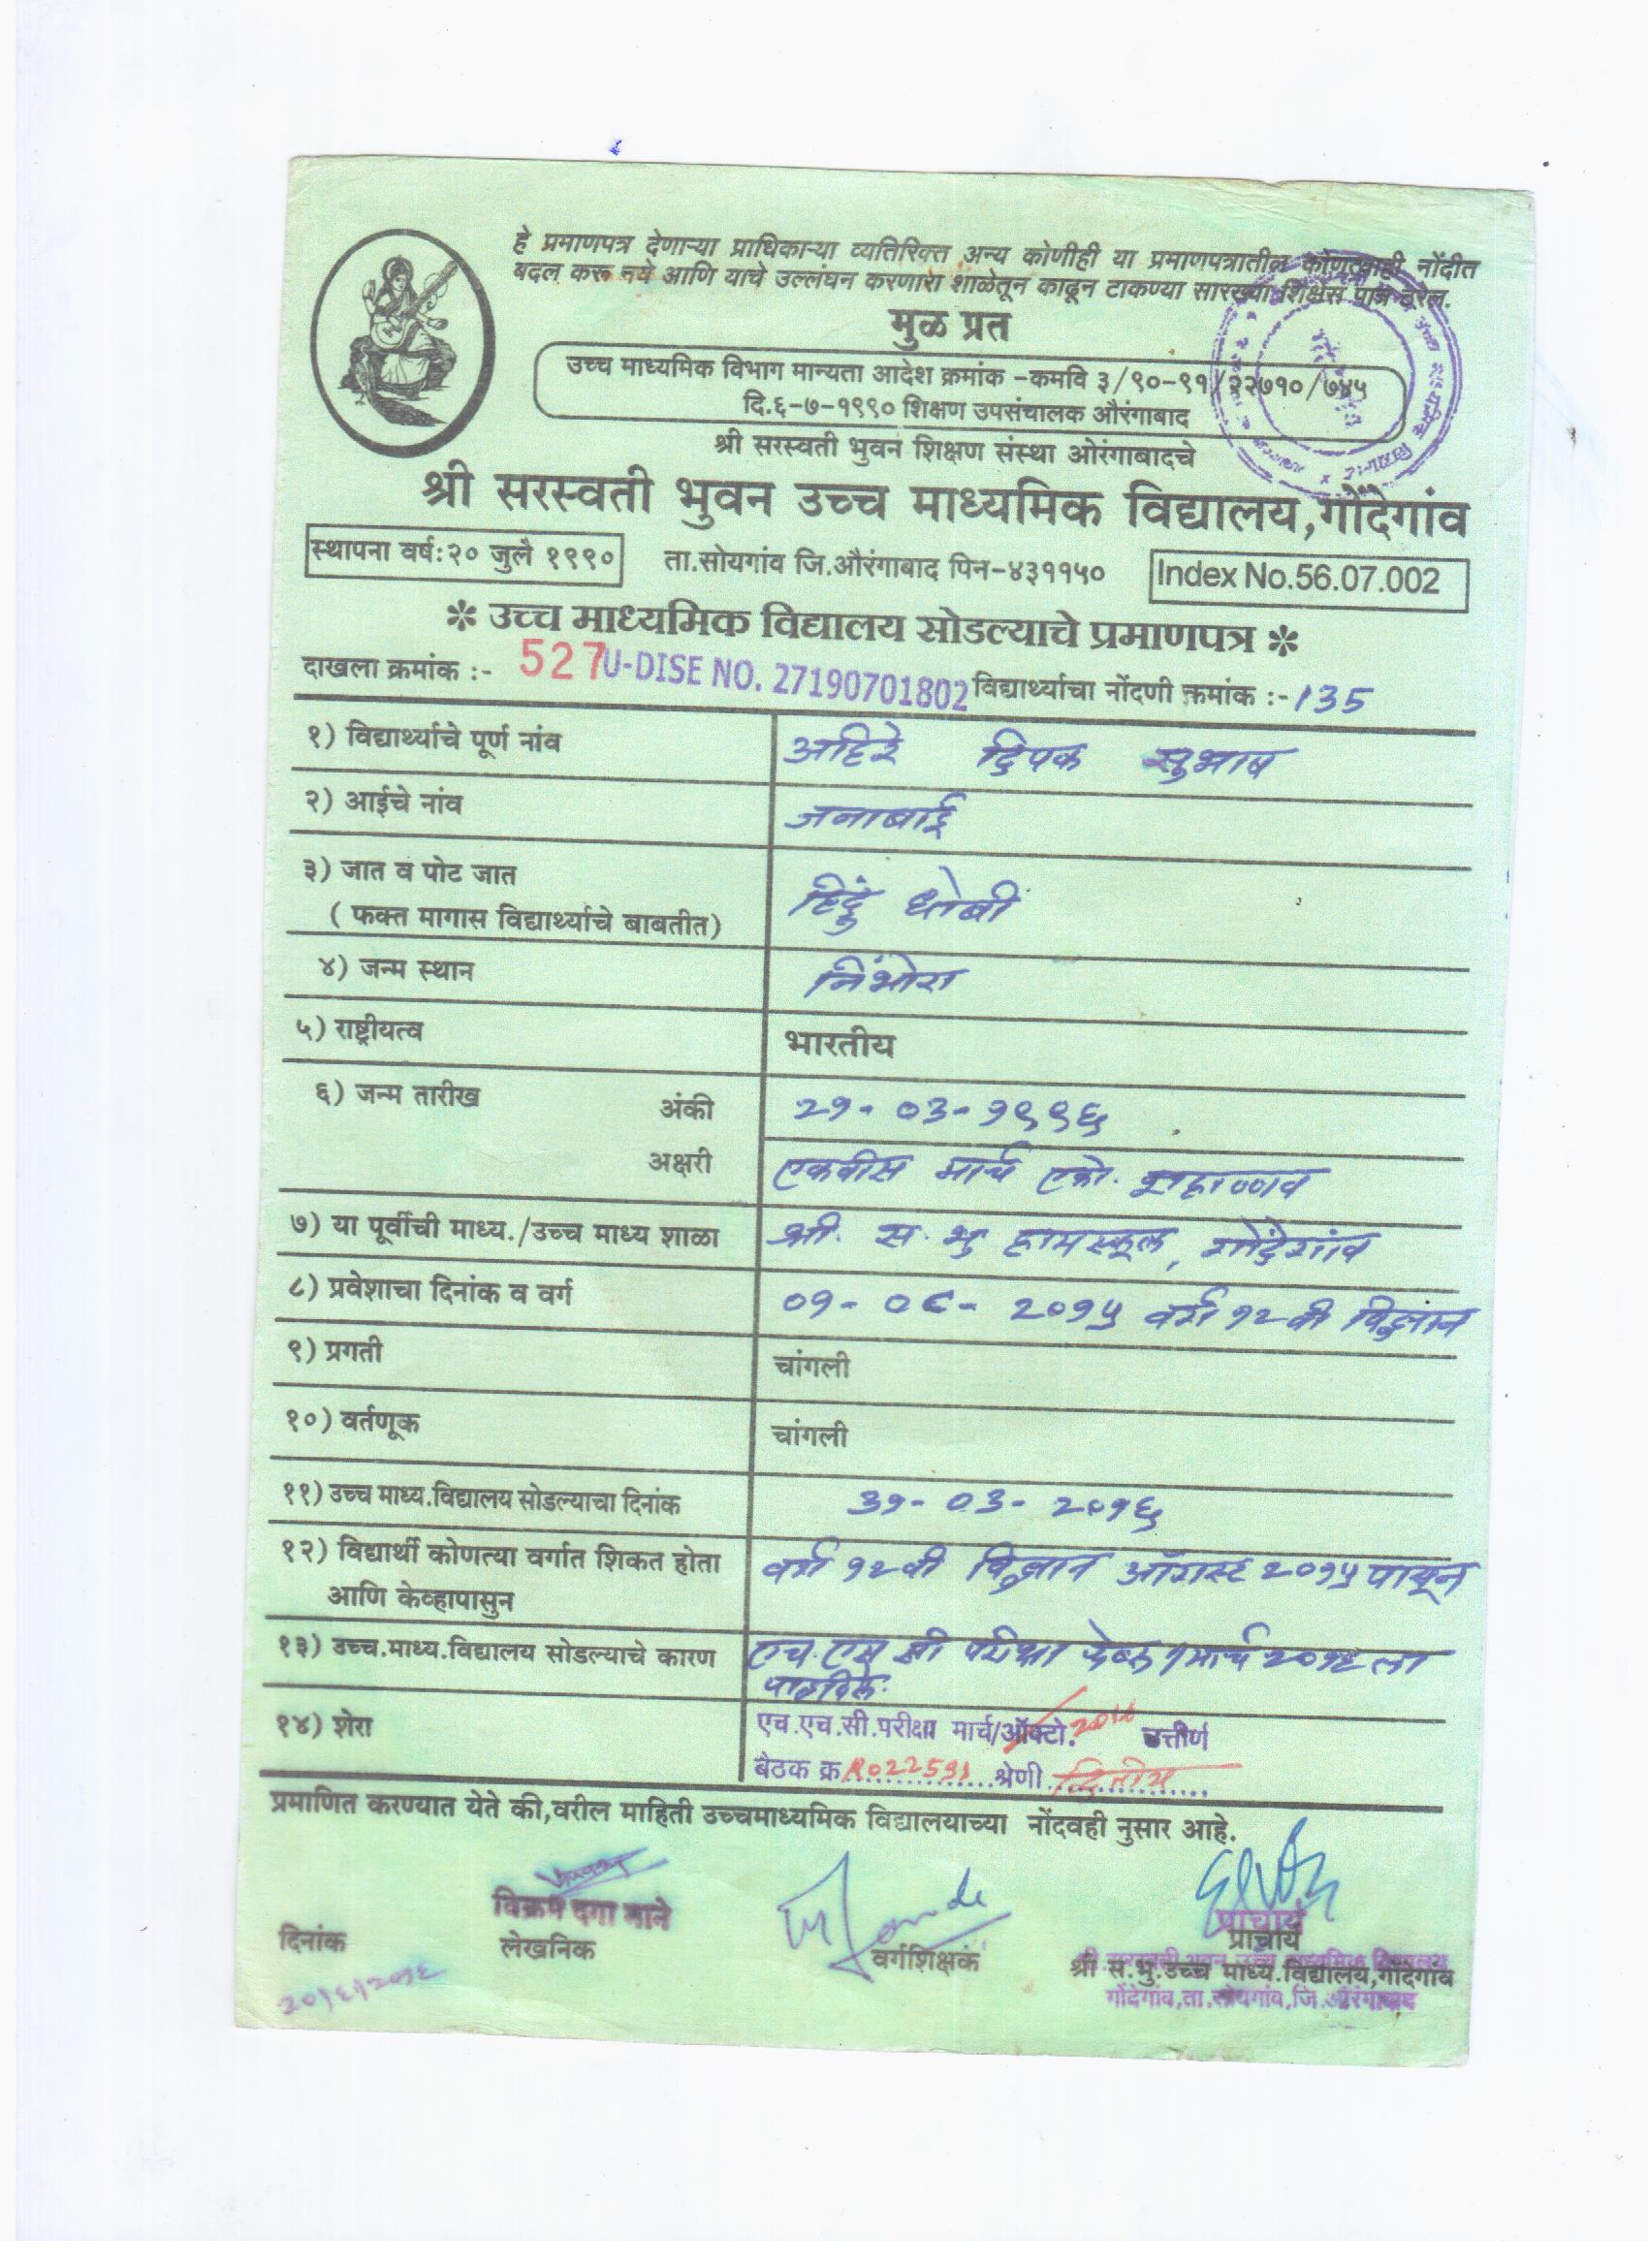 हे प्रमाणपत्र देणाऱ्या प्राधिकाऱ्या व्यतिरिक्त अन्य कोणीही या प्रमाणपत्रातील कोणत्याही नोंदीत
बदल करू नये आणि याचे उल्लंघन करणारा शाळेतून काढून टाकण्या सारख्या शिक्षेस पात्र ठरेल.
मुळ प्रत
उच्च माध्यमिक विभाग मान्यता आदेश क्रमांक -कमवि ३/९०-९१/२२७१०/७४५
दि.६-७-१९९० शिक्षण उपसंचालक औरंगाबाद
श्री सरस्वती भुवन शिक्षण संस्था ओरंगाबादचे
श्री सरस्वती भुवन उच्च माध्यमिक विद्यालय,गोंदेगांव
स्थापना वर्ष:२० जुलै १९९० ता.सोयगांव जि.औरंगाबाद पिन-४३११५० Index No.56.07.002
✻ उच्च माध्यमिक विद्यालय सोडल्याचे प्रमाणपत्र ✻
दाखला क्रमांक :- 527 U-DISE NO. 27190701802 विद्यार्थ्याचा नोंदणी क्रमांक :- 135
१) विद्यार्थ्याचे पूर्ण नांव अहिरे दिपक सुभाष
२) आईचे नांव जनाबाई
३) जात व पोट जात
( फक्त मागास विद्यार्थ्याचे बाबतीत) हिंदु धोबी
४) जन्म स्थान निंभोरा
५) राष्ट्रीयत्व भारतीय
६) जन्म तारीख अंकी २१-०३-१९९६
अक्षरी एकवीस मार्च एको. शहाण्णव
७) या पूर्वीची माध्य./उच्च माध्य शाळा श्री. स. भु हायस्कूल, गोंदेगांव
८) प्रवेशाचा दिनांक व वर्ग ०१-०८-२०१५ वर्ग १२ वी विज्ञान
९) प्रगती चांगली
१०) वर्तणूक चांगली
११) उच्च माध्य.विद्यालय सोडल्याचा दिनांक ३१-०३-२०१६
१२) विद्यार्थी कोणत्या वर्गात शिकत होता वर्ग १२वी विज्ञान ऑगस्ट २०१५ पासून
आणि केव्हापासुन
१३) उच्च.माध्य.विद्यालय सोडल्याचे कारण एच.एस सी परीक्षा मार्च २०१६ ला
पाठविले.
१४) शेरा एच.एच.सी.परीक्षा मार्च/ऑक्टो. 2016 उत्तीर्ण
बैठक क्र. श्रेणी द्वितीय
प्रमाणित करण्यात येते की,वरील माहिती उच्चमाध्यमिक विद्यालयाच्या नोंदवही नुसार आहे.
विक्रम दगा माने प्राचार्य
दिनांक लेखनिक वर्गशिक्षक प्राचार्य
श्री सरस्वती भुवन उच्च माध्यमिक विद्यालय
श्री स.भु.उच्च माध्य.विद्यालय,गोंदेगांव
गोंदेगांव,ता.सोयगांव,जि.औरंगाबाद
२०/६/२०१६